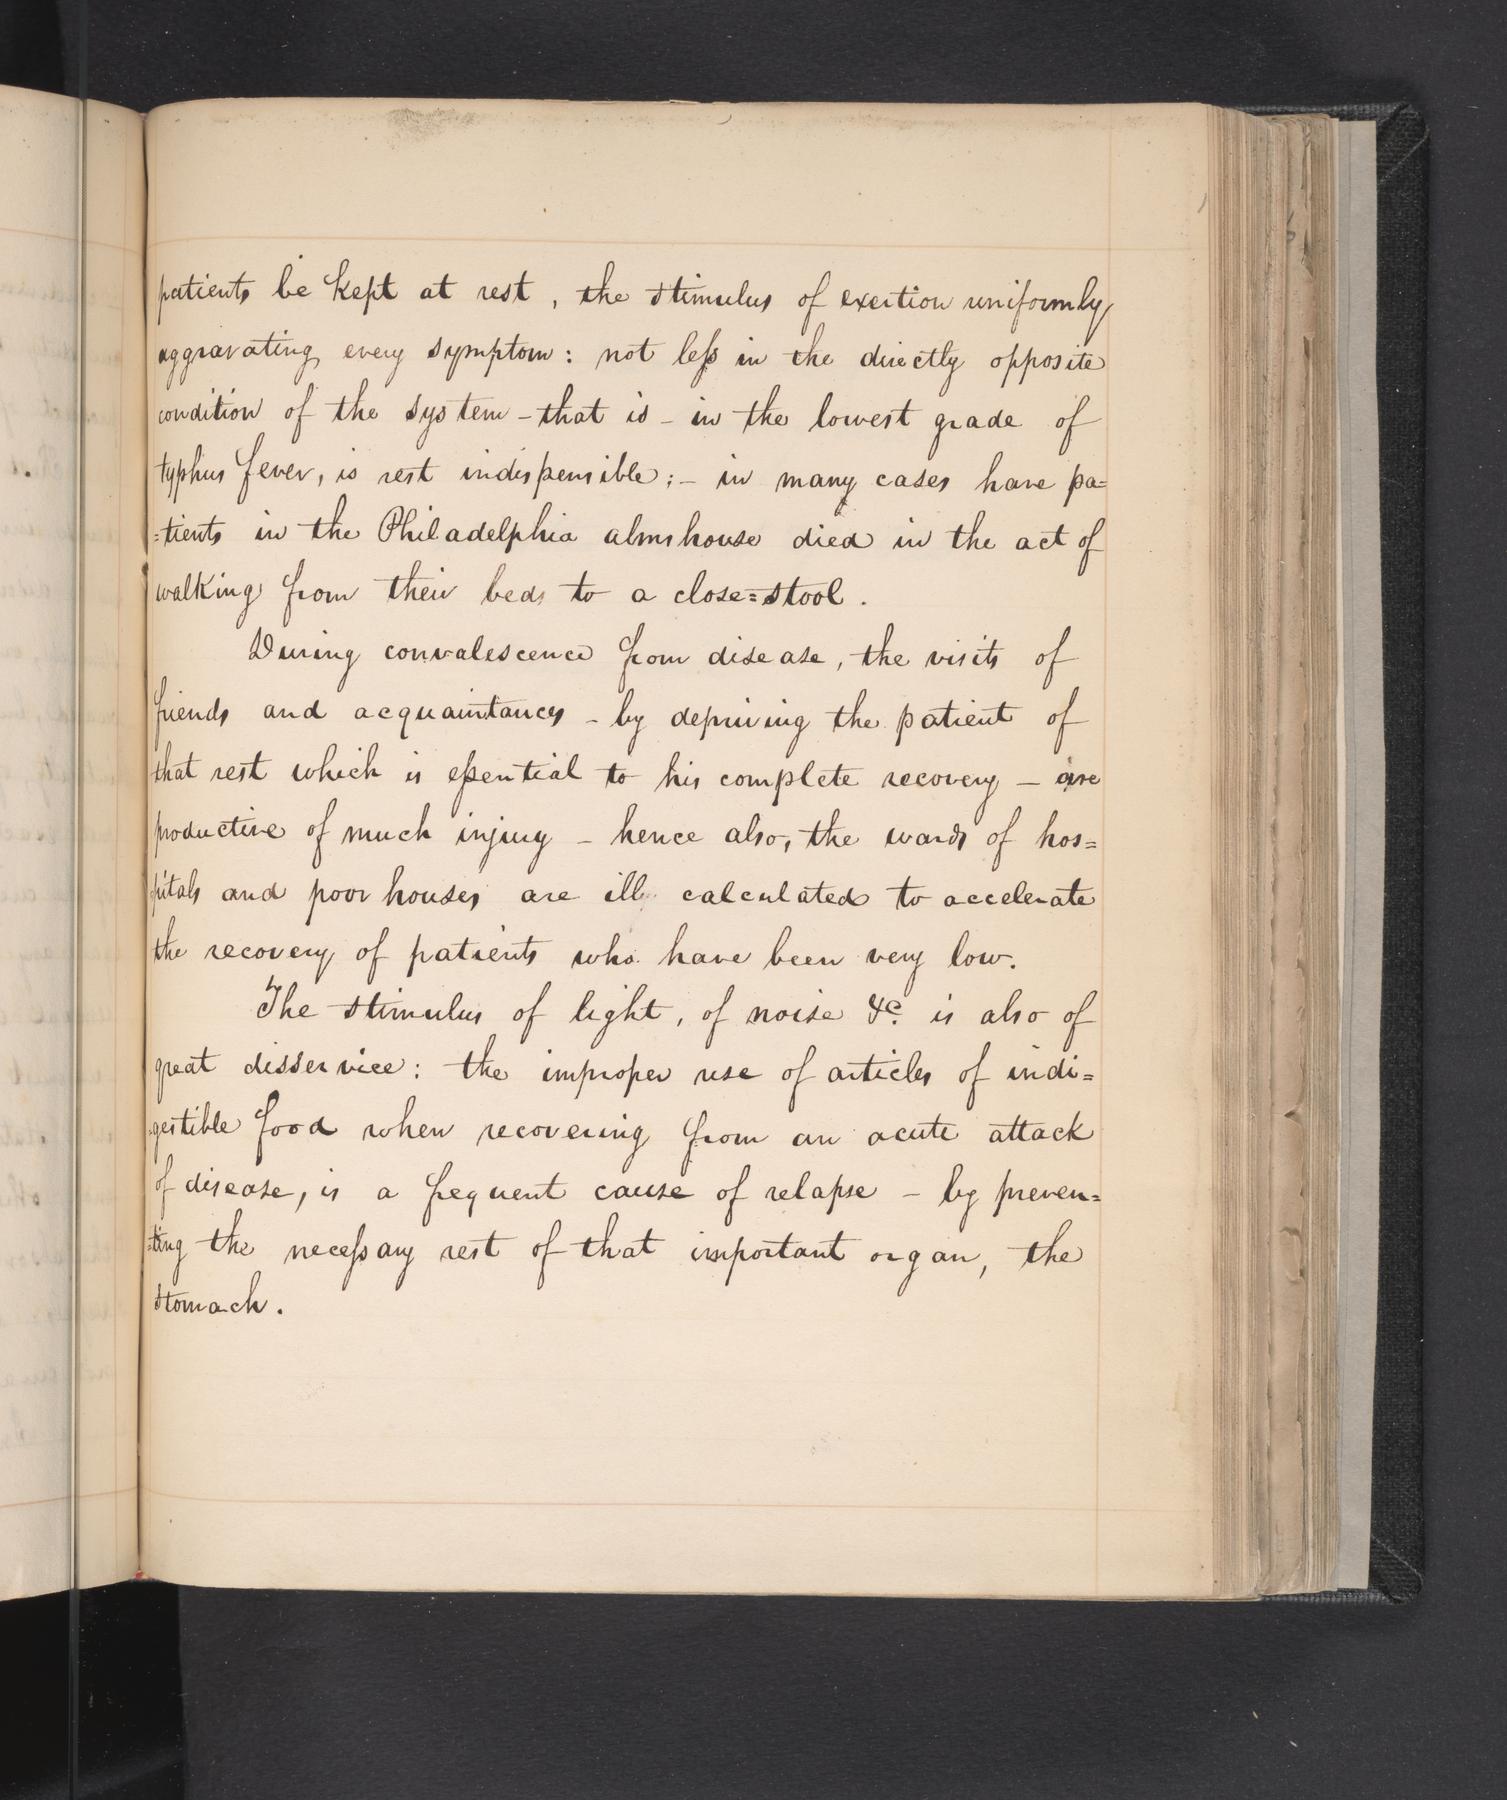 patients be kept at rest, the stimulus of exertion uniformly
aggravating every symptom: not less in the directly opposite
condition of the system – that is – in the lowest grade of
typhus fever, is rest indispensible; – in many cases have pa=
=tients in the Philadelphia almshouse died in the act of
walking from their beds to a close=stool.
During convalescence from disease, the visits of
friends and acquaintances – by depriving the patient of
that rest which is essential to his complete recovery – are
productive of much injury – hence also, the wards of hos=
pitals and poor houses are ill calculated to accelerate
the recovery of patients who have been very low.
The stimulus of light, of noise &c. is also of
great disservice: the improper use of articles of indi=
=gestible food when recovering from an acute attack
of disease, is a frequent cause of relapse – by preven=
=ting the necessary rest of that important organ, the
stomach.